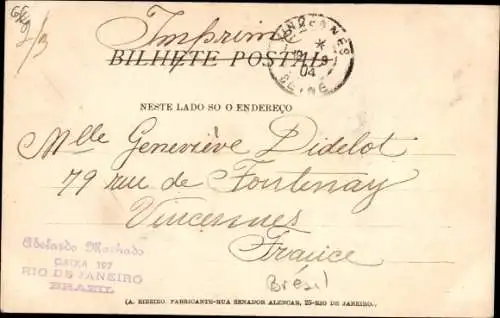 Imprimé
BILHETE POSTAL
VINCENNES
04
SEINE
NESTE LADO SO O ENDEREÇO
Mlle Geneviève Didelot
79 rue de Fontenay
Vincennes
France
Brésil
Abelardo Machado
CAIXA 197
RIO DE JANEIRO
BRAZIL
(A. RIBEIRO. FABRICANTE-RUA SENADOR ALENCAR, 25-RIO DE JANEIRO.,